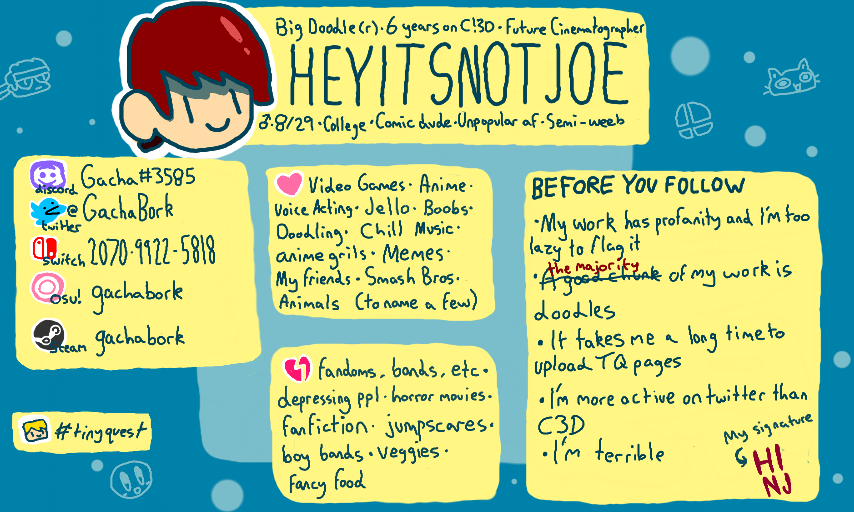 Big Doodle(r) · 6 years on C!3D · Future Cinematographer
HEYITSNOTJOE
♂ · 8/29 · College · Comic dude · Unpopular af · Semi-weeb
discord Gacha#3585
twitter @GachaBork
switch 2070-9922-5818
osu! gachabork
steam gachabork
#tinyquest
Video Games · Anime ·
Voice Acting · Jello · Boobs ·
Doodling · Chill Music ·
anime grils · Memes ·
My friends · Smash Bros. ·
Animals (to name a few)
fandoms, bands, etc ·
depressing ppl · horror movies ·
fanfiction · jumpscares ·
boy bands · veggies ·
fancy food
BEFORE YOU FOLLOW
· My work has profanity and I'm too
lazy to flag it
the majority
· A good chunk of my work is
doodles
· It takes me a long time to
upload TQ pages
· I'm more active on twitter than
C3D
· I'm terrible
My signature
HI
NJ